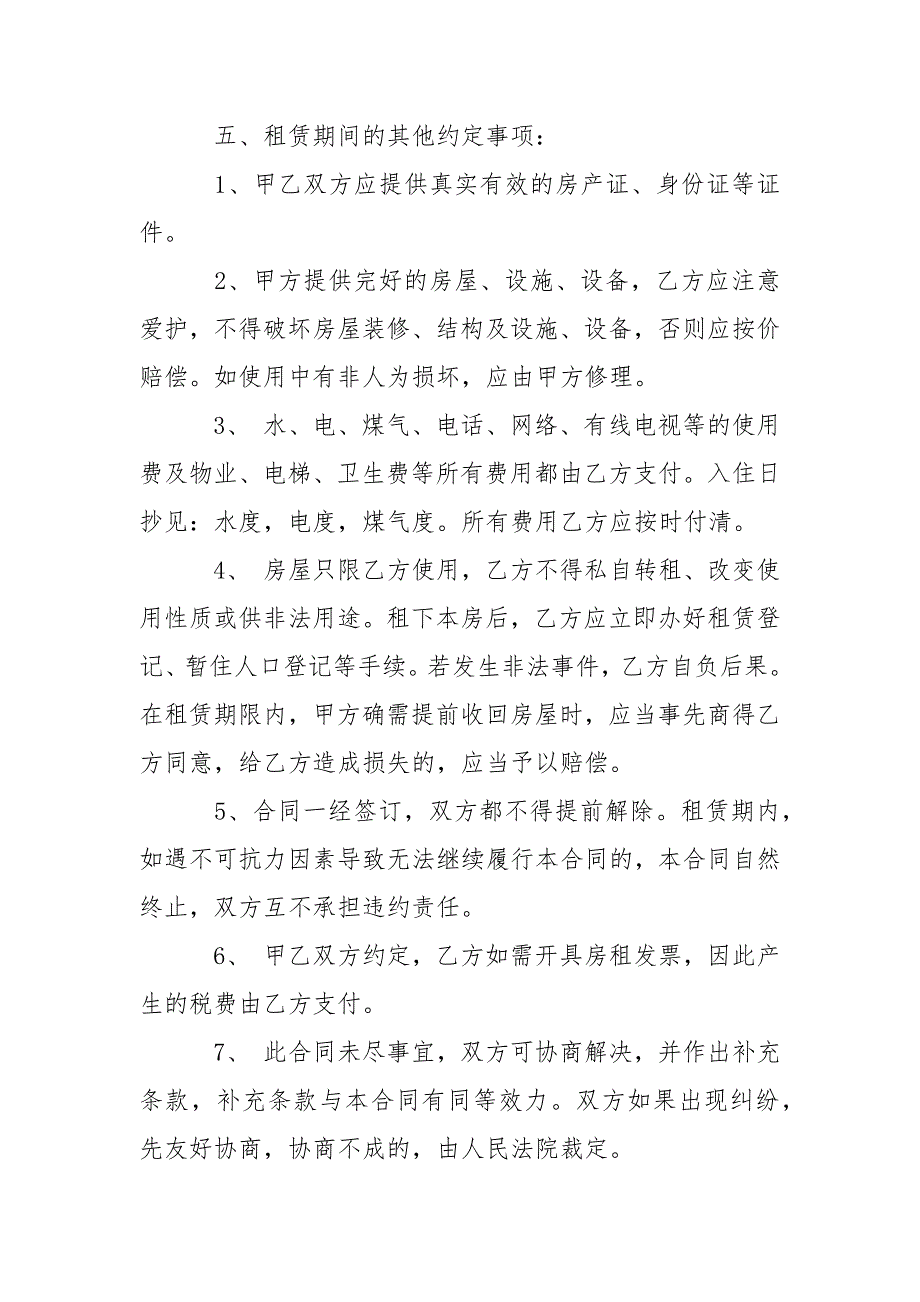 五、租赁期间的其他约定事项：
1、甲乙双方应提供真实有效的房产证、身份证等证
件。
2、甲方提供完好的房屋、设施、设备，乙方应注意
爱护，不得破坏房屋装修、结构及设施、设备，否则应按价
赔偿。如使用中有非人为损坏，应由甲方修理。
3、 水、电、煤气、电话、网络、有线电视等的使用
费及物业、电梯、卫生费等所有费用都由乙方支付。入住日
抄见：水度，电度，煤气度。所有费用乙方应按时付清。
4、 房屋只限乙方使用，乙方不得私自转租、改变使
用性质或供非法用途。租下本房后，乙方应立即办好租赁登
记、暂住人口登记等手续。若发生非法事件，乙方自负后果。
在租赁期限内，甲方确需提前收回房屋时，应当事先商得乙
方同意，给乙方造成损失的，应当予以赔偿。
5、合同一经签订，双方都不得提前解除。租赁期内，
如遇不可抗力因素导致无法继续履行本合同的，本合同自然
终止，双方互不承担违约责任。
6、 甲乙双方约定，乙方如需开具房租发票，因此产
生的税费由乙方支付。
7、 此合同未尽事宜，双方可协商解决，并作出补充
条款，补充条款与本合同有同等效力。双方如果出现纠纷，
先友好协商，协商不成的，由人民法院裁定。